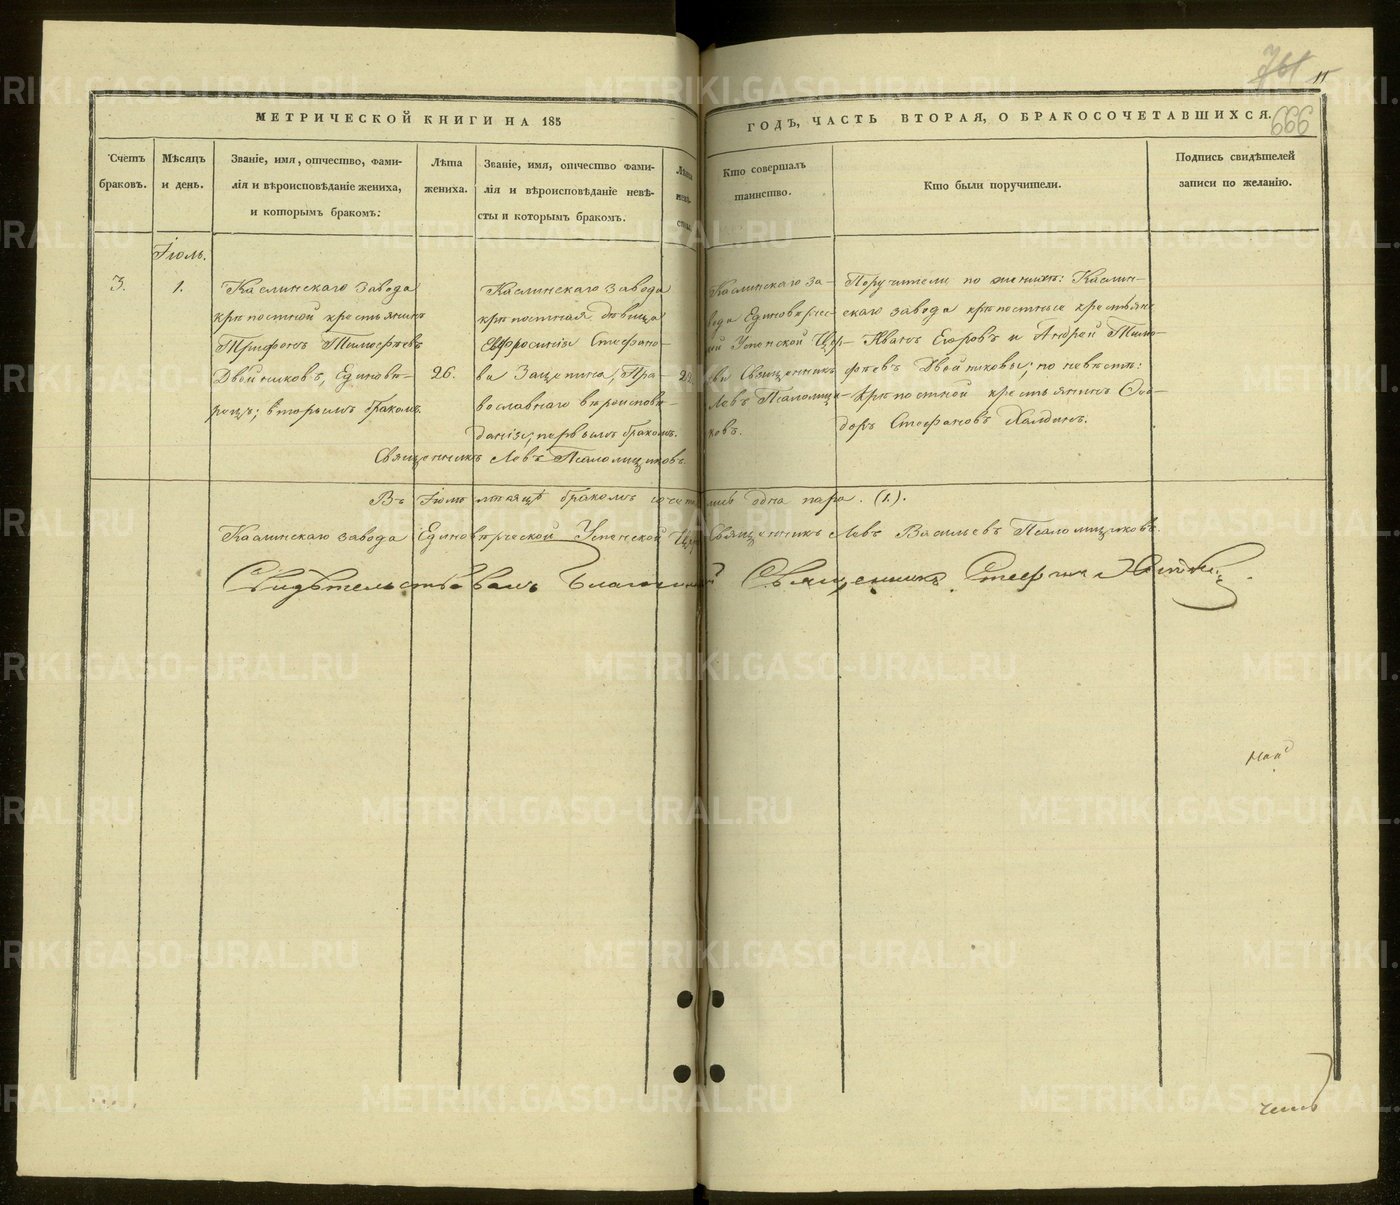 761 11
666
МЕТРИЧЕСКОЙ КНИГИ НА 185
ГОДЪ, ЧАСТЬ ВТОРАЯ, О БРАКОСОЧЕТАВШИХСЯ.
Счетъ
браковъ.
Мѣсяцъ
и день.
Званіе, имя, отчество, фами-
лія и вѣроисповѣданіе жениха,
и которымъ бракомъ:
Лѣта
жениха.
Званіе, имя, отчество фами-
лія и вѣроисповѣданіе невѣ-
сты и которымъ бракомъ.
Лѣта
невѣ-
сты.
Кто совершалъ
таинство.
Кто были поручители.
Подпись свидѣтелей
записи по желанію.
Іюль.
3.
1.
Каслинскаго завода
крѣпостной крестьянинъ
Трифонъ Тимофѣевъ
Двойниковъ, Единовѣ-
рецъ; вторымъ бракомъ.
26.
Каслинскаго завода
крѣпостная дѣвица
Евфросинія Стефано-
ва Зацепина, Пра-
вославнаго вѣроисповѣ-
данія; первымъ бракомъ.
Каслинскаго за-
вода Единовѣрчес-
кой Успенской Цер-
кви Священникъ
Левъ Псаломщи-
ковъ.
Поручители по женихѣ: Каслин-
скаго завода крѣпостные крестьяне
Иванъ Егоровъ и Андрей Тимо-
фѣевъ Двойниковы; по невѣстѣ:
Крѣпостной крестьянинъ Ѳео-
доръ Стефановъ Халдинъ.
Священникъ Левъ Псаломщиковъ.
Въ Іюлѣ мѣсяцѣ бракомъ сочетались одна пара. (1.).
Каслинскаго завода Единовѣрческой Успенской Церкви Священникъ Левъ Васильевъ Псаломщиковъ.
Свидѣтельствовалъ Благочинный Священникъ Стефанъ
METRIKI.GASO-URAL.RU